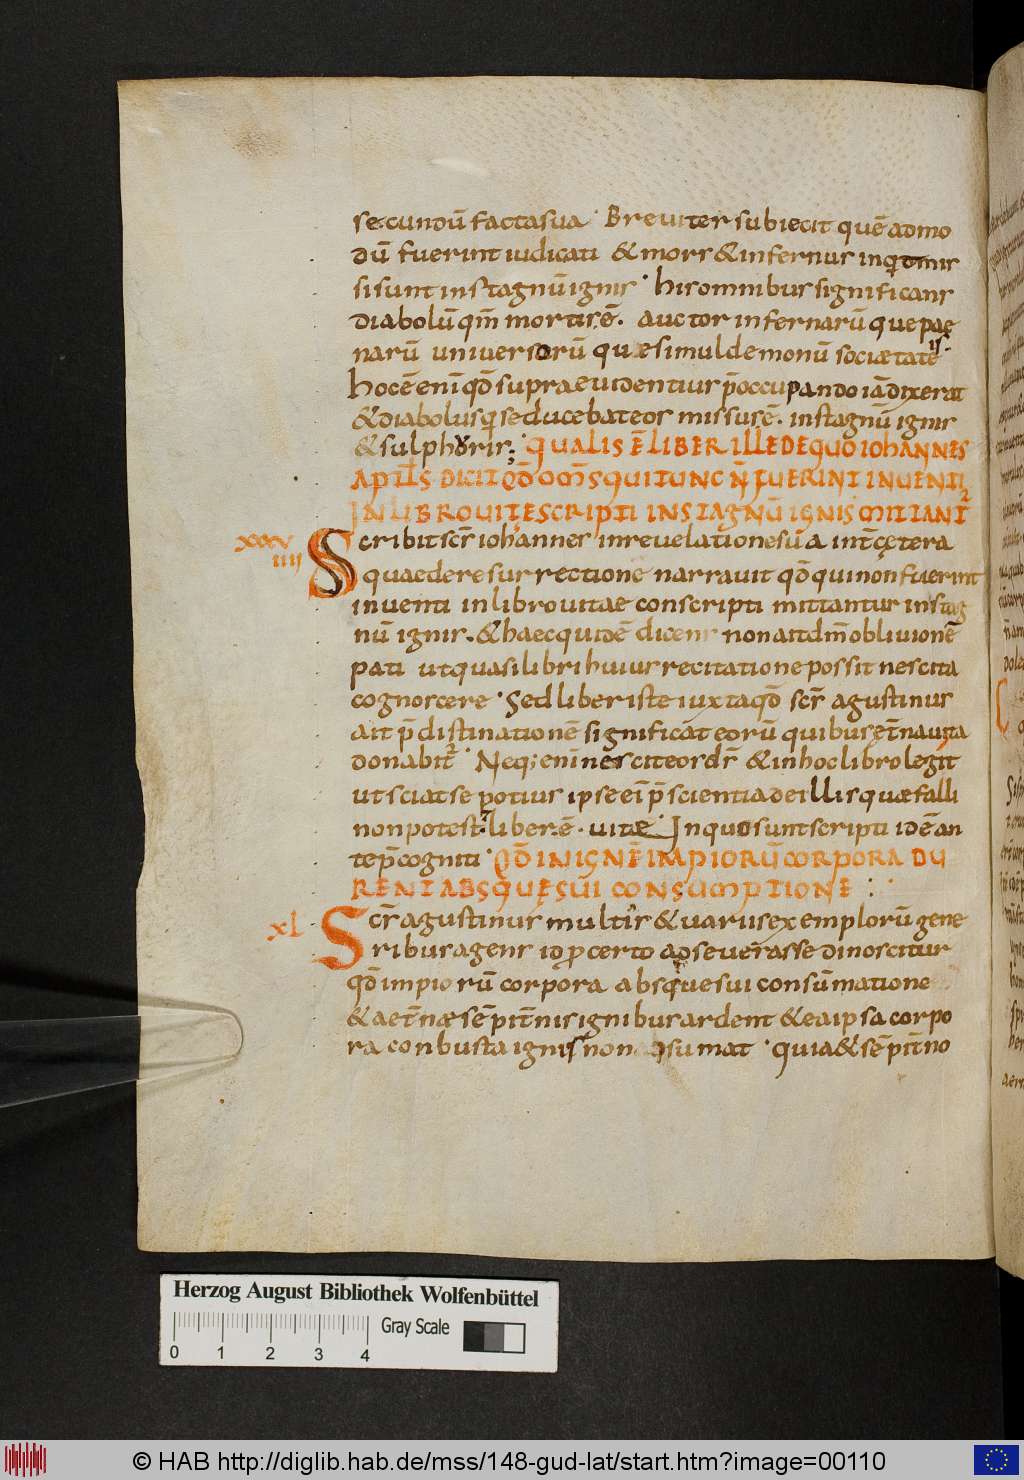 secundū facta sua · Breuiter subiecit quē admo
dū fuerint iudicati & mors & infernus inquid missi
si sunt in stagnū ignis · his nominibus significans
diabolū qm̄ mortis ē. auctor infernarū que pae
narū universorū quae simul demonū societate
is.
hoc ē enī qd̄ supra euidentius p̄occupando iā dixerat
& diabolus qui seducebat eos missus ē. in stagnū ignis
& sulphoris; QUALIS Ē LIBER ILLE DE QUO IOHANNES
APLS DICIT QD̄ OMS QUI TUNC N̄ FUERINT INVENTI
IN LIBRO VITĘ SCRIPTI IN STAGNŪ IGNIS MITTANT
xxxv
iiii
Scribit scr̄ iohannes in reuelatione sū a int̄ cętera
quae de resurrectione narrauit qd̄ qui non fuerint
inuenti in libro uitae conscripti mittantur in stag
nū ignis. & haec quidē dicens non aut dm̄ obliuionē
pati ut quasi libri huius recitatione possit nescita
cognoscere · Sed liber iste iuxta qd̄ scr̄ agustinus
ait p̄distinationē significat eorū quibus et̄na uita
donabit · Neq; enī nescit eos dr̄ & in hoc libro legit
ut sciat se potius ipse eī p̄scientia de illis quae falli
non potest. liber ē. uitae · In quo sunt scripti id ē an
te p̄cogniti · QD̄ IN IGNĒ IMPIORŪ CORPORA DU
RENT ABSQUE SUI CONSUMPTIONE :·
xl
Scr̄ agustinus multis & uariis exemplorū gene
ribus agens id p certo adseuerasse dinoscitur
qd̄ impiorū corpora absque sui consūmatione
& aet̄nae sēpit̄nis ignibus ardent & ea ipsa corpo
ra conbusta ignis non ꝯsumat · quia & sēpit̄no
Herzog August Bibliothek Wolfenbüttel
Gray Scale
0 1 2 3 4
© HAB http://diglib.hab.de/mss/148-gud-lat/start.htm?image=00110